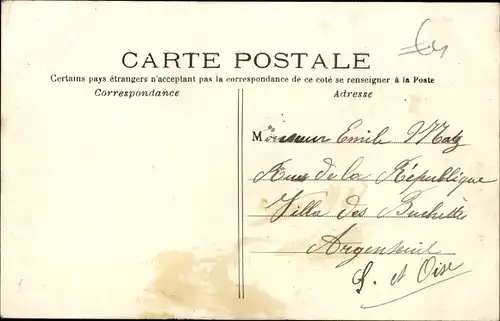 CARTE POSTALE
Certains pays étrangers n'acceptant pas la correspondance de ce coté se renseigner à la Poste
Correspondance
Adresse
Monsieur Emile Matz
Rue de la République
Villa des Buchettes
Argenteuil
S. et Oise